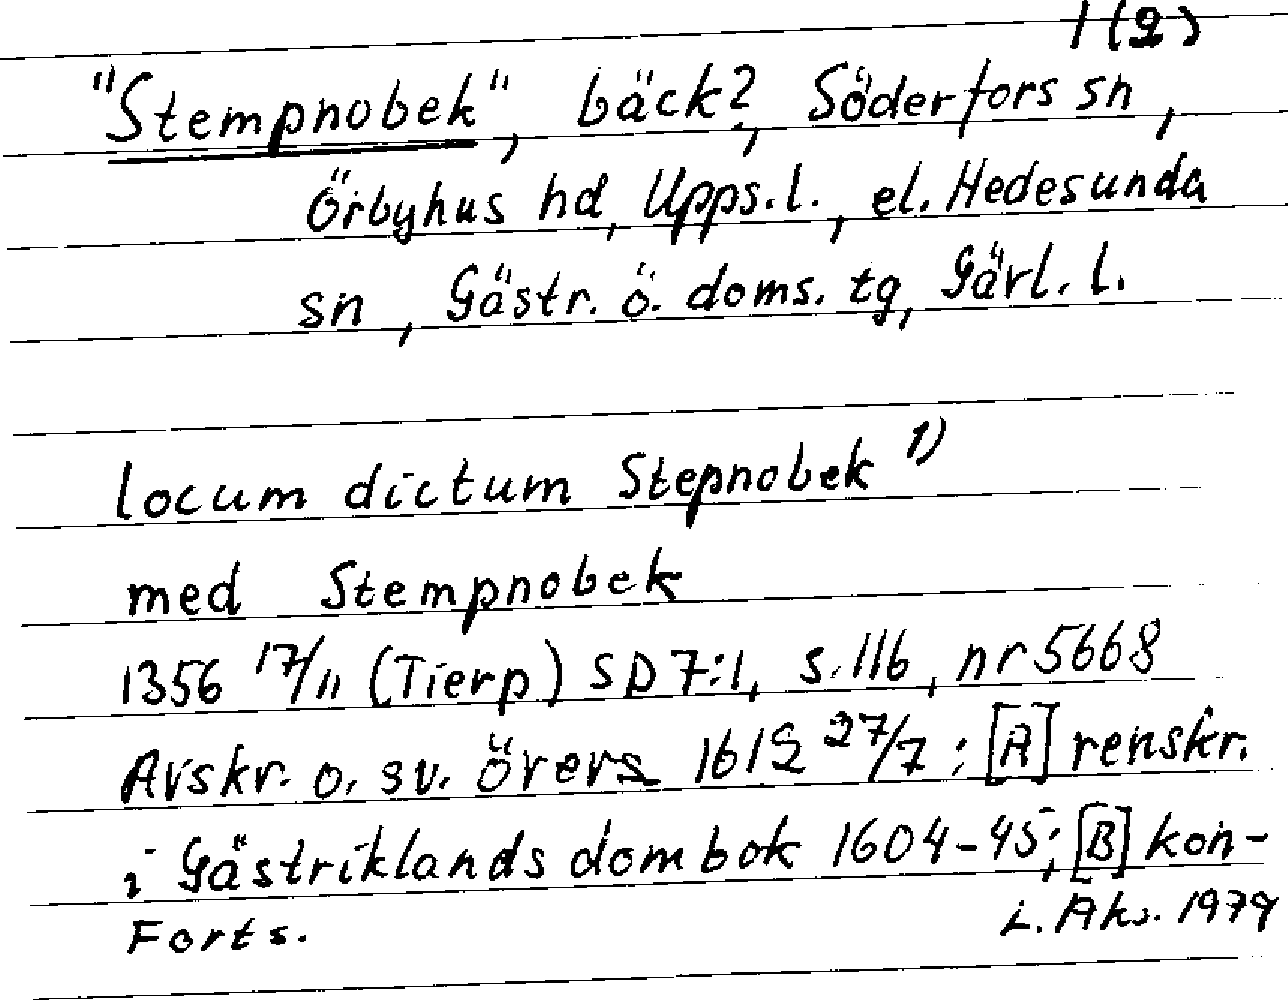 1(2)
"Stempnobek", bäck?, Söderfors sn,
Örbyhus hd, Upps.l., el. Hedesunda
sn, Gästr. ö. doms. tg, Gävl. l.
locum dictum Stepnobek 1)
med Stempnobek
1356 17/11 (Tierp) SD 7:1, s. 116, nr 5668
Avskr. o. sv. övers 1612 27/7 : [A] renskr.
i Gästriklands dombok 1604-45; [B] kon-
Forts. L. Aks. 1979